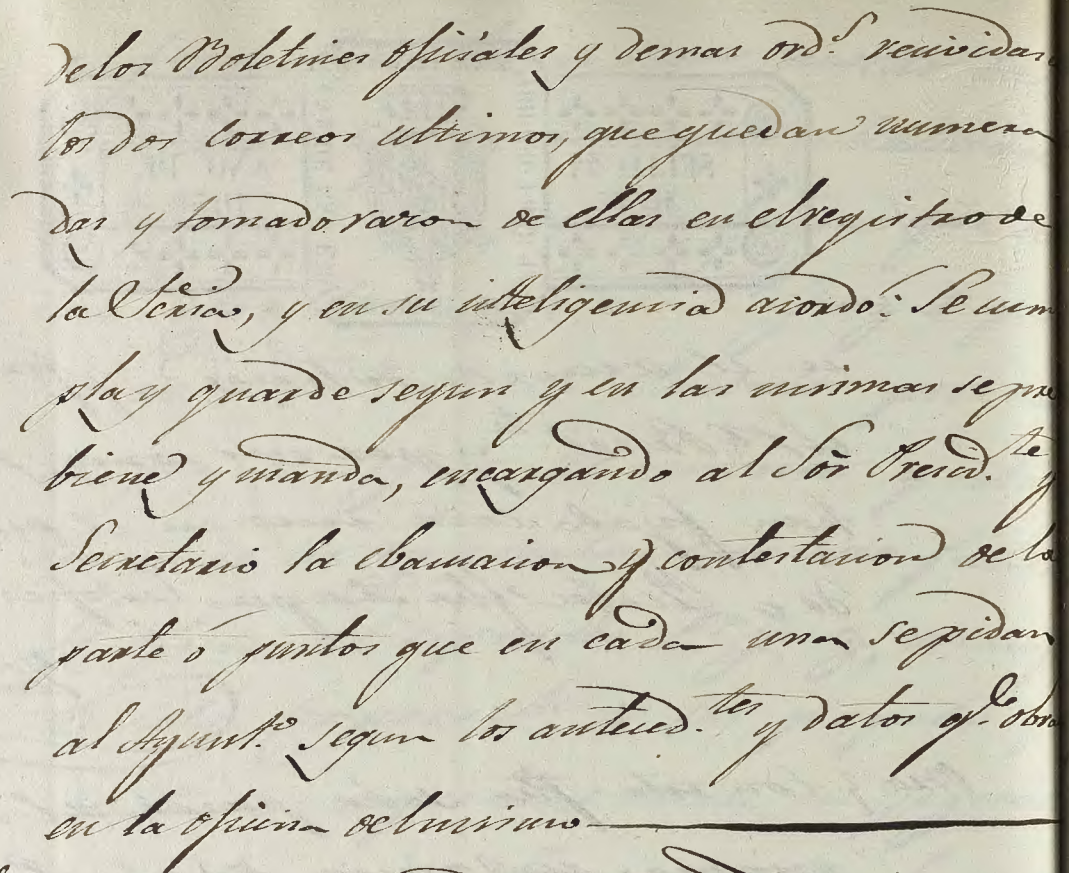 delos Boletines ofisales y demas ord.s recividas
los dos correos ultimos, que quedan numera
das y tomado razon de ellas en el registro de
la Scria, y en su inteligencia acordó: Se cum
pla y guarde segun y en las mismas se pre
biene y manda, encargando al Sór Presid.te y
Secretario la ebacuacion y contestacion de la
parte ó puntos que en cada una se pidan
al Ayunt.o segun los anteced.tes y datos q.e obran
en la oficina del mismo